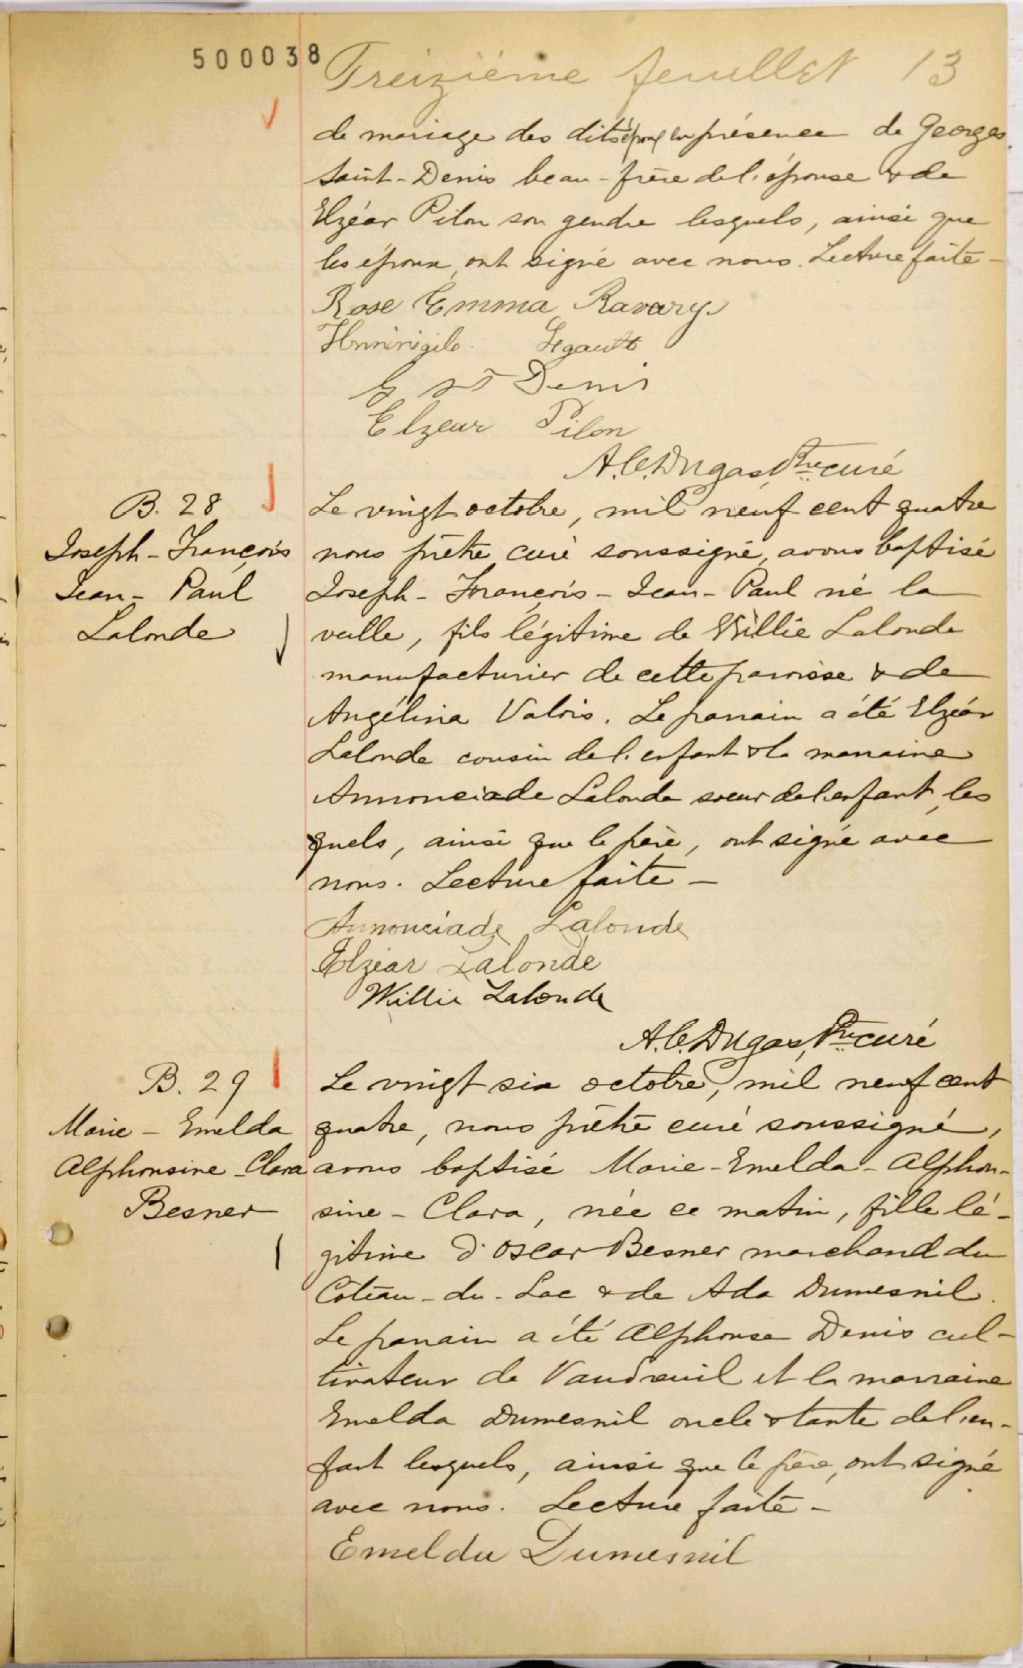 500038
Treizième feuillet 13
de mariage des dits époux en présence de Georges
Saint-Denis beau-frère de l'épouse & de
Elzéar Pilon son gendre lesquels, ainsi que
les époux, ont signé avec nous. Lecture faite -
Rose Emma Ravary
Legault
G St Denis
Elzear Pilon
A.C. Dugas, Ptre curé
B. 28
Joseph-François
Jean-Paul
Lalonde
Le vingt octobre, mil neuf cent quatre
nous prêtre curé soussigné, avons baptisé
Joseph-François-Jean-Paul né la
veille, fils légitime de Willie Lalonde
manufacturier de cette paroisse & de
Angélina Valois. Le parrain a été Elzéar
Lalonde cousin de l'enfant & la marraine
Annonciade Lalonde soeur de l'enfant, les
quels, ainsi que le père, ont signé avec
nous. Lecture faite -
Annonciade Lalonde
Elzéar Lalonde
Willie Lalonde
A.C. Dugas, Ptre curé
B. 29
Marie-Emelda
Alphonsine-Clara
Besner
Le vingt six octobre, mil neuf cent
quatre, nous prêtre curé soussigné,
avons baptisé Marie-Emelda-Alphon-
sine-Clara, née ce matin, fille lé-
gitime d'Oscar Besner marchand du
Côteau-du-Lac & de Ada Dumesnil.
Le parrain a été Alphonse Denis cul-
tivateur de Vaudreuil et la marraine
Emelda Dumesnil oncle & tante de l'en-
fant lesquels, ainsi que le père, ont signé
avec nous. Lecture faite -
Emelda Dumesnil